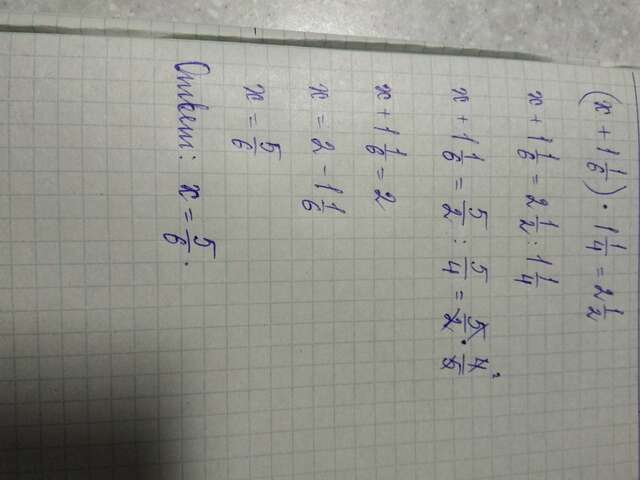 (x + 1 1/6) · 1 1/4 = 2 1/2
x + 1 1/6 = 2 1/2 : 1 1/4
x + 1 1/6 = 5/2 : 5/4 = 5/2 · 4/5 ²
x + 1 1/6 = 2
x = 2 - 1 1/6
x = 5/6
Ответ: x = 5/6.